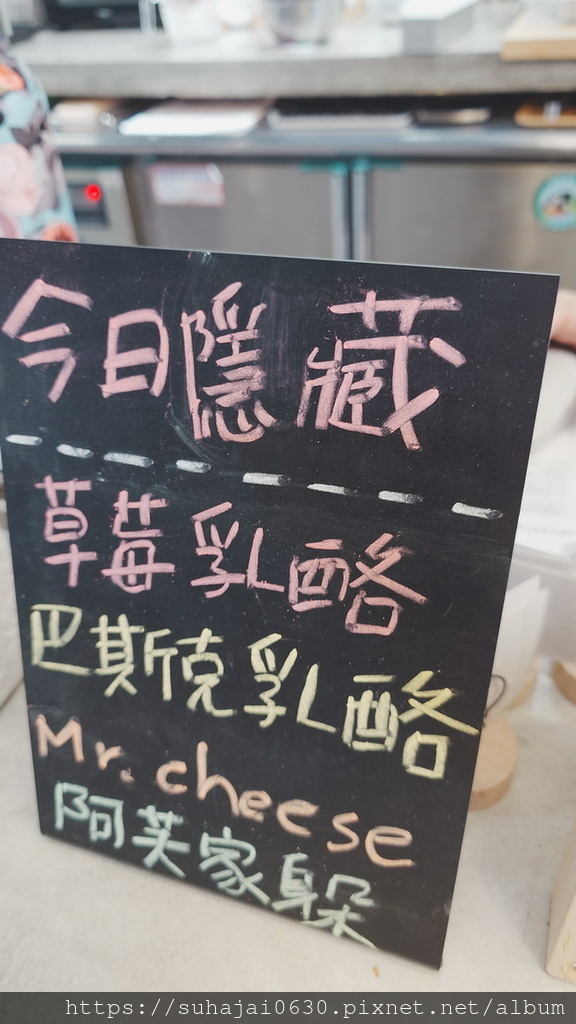 今日隱藏
草莓乳酪
巴斯克乳酪
Mr. cheese
阿芙家躲
https://suhajai0630.pixnet.net/album